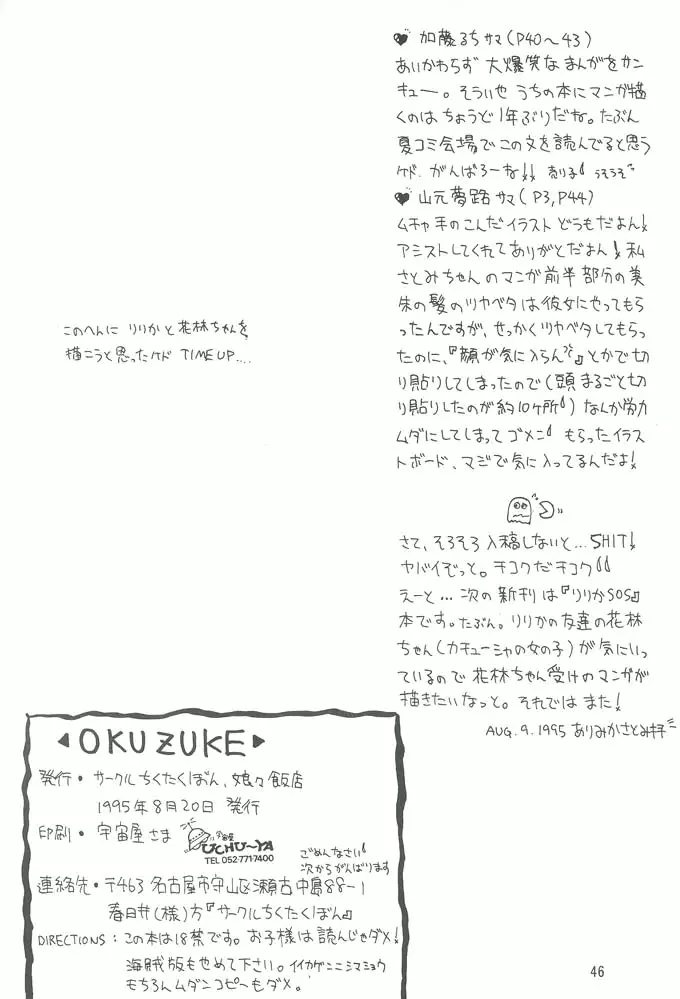 ♥ 加藤るちサマ(P40〜43)
あいかわらず 大爆笑なまんがをサン
キュー。そういや うちの本にマンガ描
くのは ちょうど1年ぶりだね。たぶん
夏コミ会場でこの文を読んでると思う
ケド、がんばろーね!! 売り子 うそうそ
♥ 山元夢路サマ(P3,P44)
ムチャ手のこんだイラスト どうもだよん!
アシストしてくれてありがとだよん! 私
さとみちゃんのマンガ前半部分の美
朱の髪のツヤベタは彼女にやってもら
ったんですが、せっかくツヤベタしてもらっ
たのに、『顔が気に入らん』とかで切
り貼りしてしまったので(頭まるごと切
り貼りしたのが約10ヶ所)なんか労力
ムダにしてしまって ゴメン もらったイラス
トボード、マジで気に入ってるんだよ!
さて、そろそろ入稿しないと…SHIT!
ヤバイぞっと。チコクだチコク
えーと…次の新刊は『りりかSOS』
本です。たぶん。りりかの友達の花林
ちゃん(カチューシャの女の子)が気にいっ
ているので 花林ちゃん受けのマンガが
描きたいなっと。それでは また!
AUG.9.1995 ありみかさとみ拝
このへんに りりかと花林ちゃんを
描こうと思ったケド TIME UP....
◀OKUZUKE▶
発行・サークルちくたくぼん、娘々飯店
1995年8月20日 発行
印刷・宇宙屋さま 宇宙屋 UCHU〜YA
TEL 052-771-7400
ごめんなさい
次からがんばります
連絡先・〒463 名古屋市守山区瀬古中島88-1
春日井(様)方『サークルちくたくぼん』
DIRECTIONS:この本は18禁です。お子様は読んじゃダメ!
海賊版もやめて下さい。イイカゲンニシマショウ
もちろんムダンコピーもダメ。
46